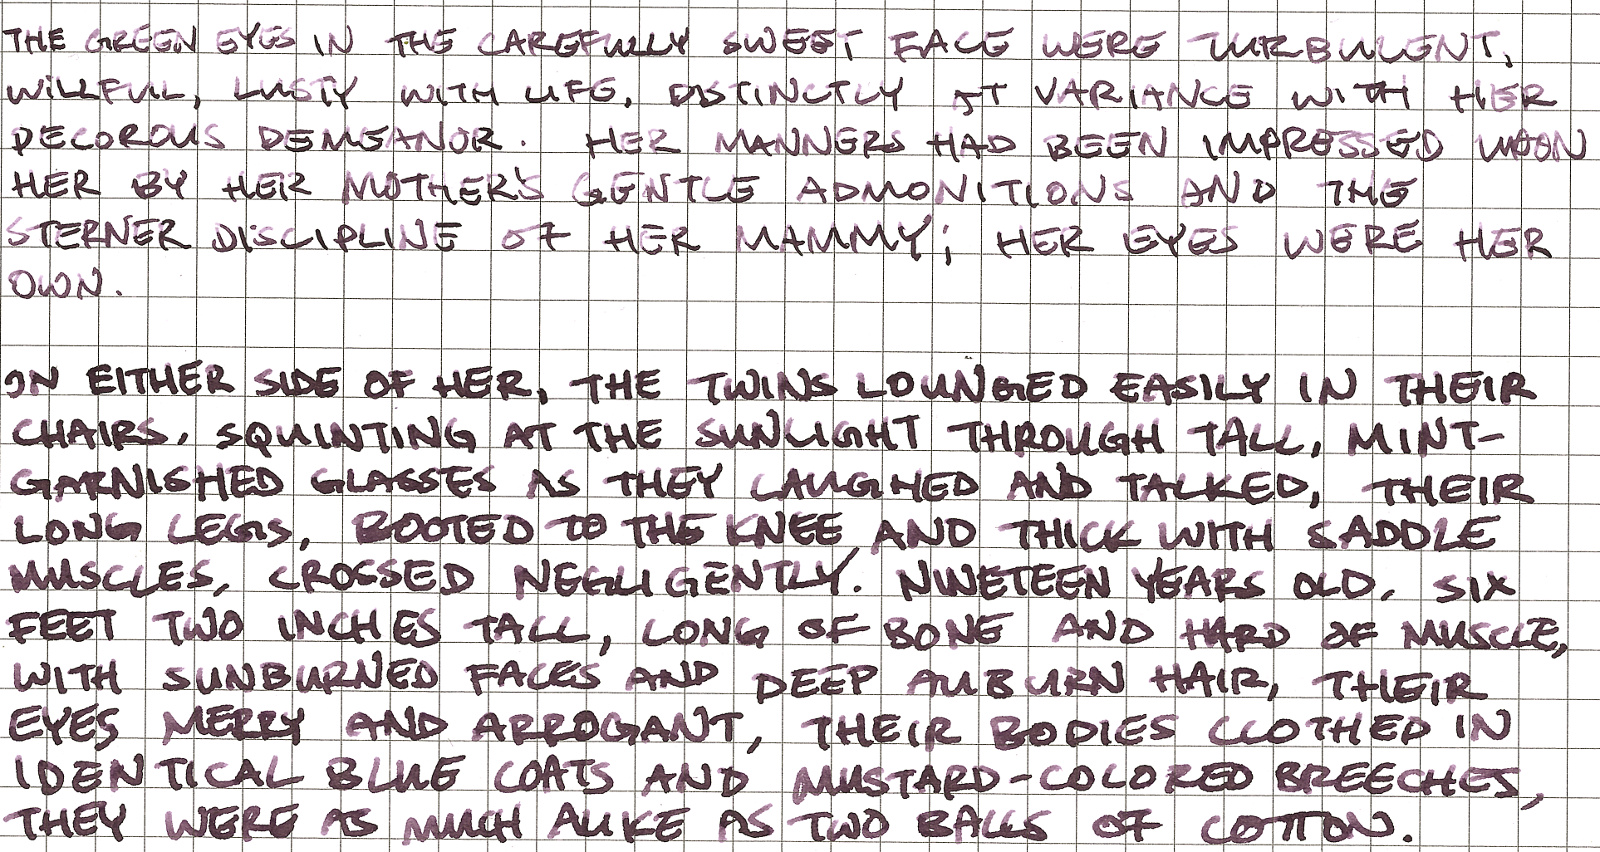 THE GREEN EYES IN THE CAREFULLY SWEET FACE WERE TURBULENT,
WILLFUL, LUSTY WITH LIFE, DISTINCTLY AT VARIANCE WITH HER
DECOROUS DEMEANOR. HER MANNERS HAD BEEN IMPRESSED UPON
HER BY HER MOTHER'S GENTLE ADMONITIONS AND THE
STERNER DISCIPLINE OF HER MAMMY; HER EYES WERE HER
OWN.
ON EITHER SIDE OF HER, THE TWINS LOUNGED EASILY IN THEIR
CHAIRS, SQUINTING AT THE SUNLIGHT THROUGH TALL, MINT-
GARNISHED GLASSES AS THEY LAUGHED AND TALKED, THEIR
LONG LEGS, BOOTED TO THE KNEE AND THICK WITH SADDLE
MUSCLES, CROSSED NEGLIGENTLY. NINETEEN YEARS OLD, SIX
FEET TWO INCHES TALL, LONG OF BONE AND HARD OF MUSCLE,
WITH SUNBURNED FACES AND DEEP AUBURN HAIR, THEIR
EYES MERRY AND ARROGANT, THEIR BODIES CLOTHED IN
IDENTICAL BLUE COATS AND MUSTARD-COLORED BREECHES,
THEY WERE AS MUCH ALIKE AS TWO BALLS OF COTTON.